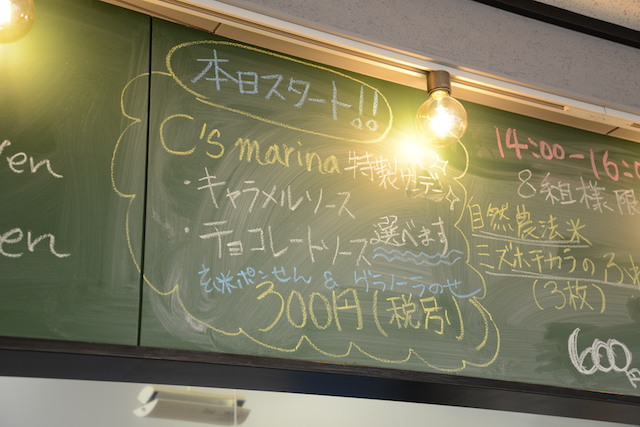 ren
en
本日スタート!!
C's marina 特製
・キャラメルソース
・チョコレートソース 選べます
玄米ポンせん & グラノーラのせ
300円(税別)
14:00-16:0
8組様限
自然農法米
ミズホチカラの
(3枚)
600円